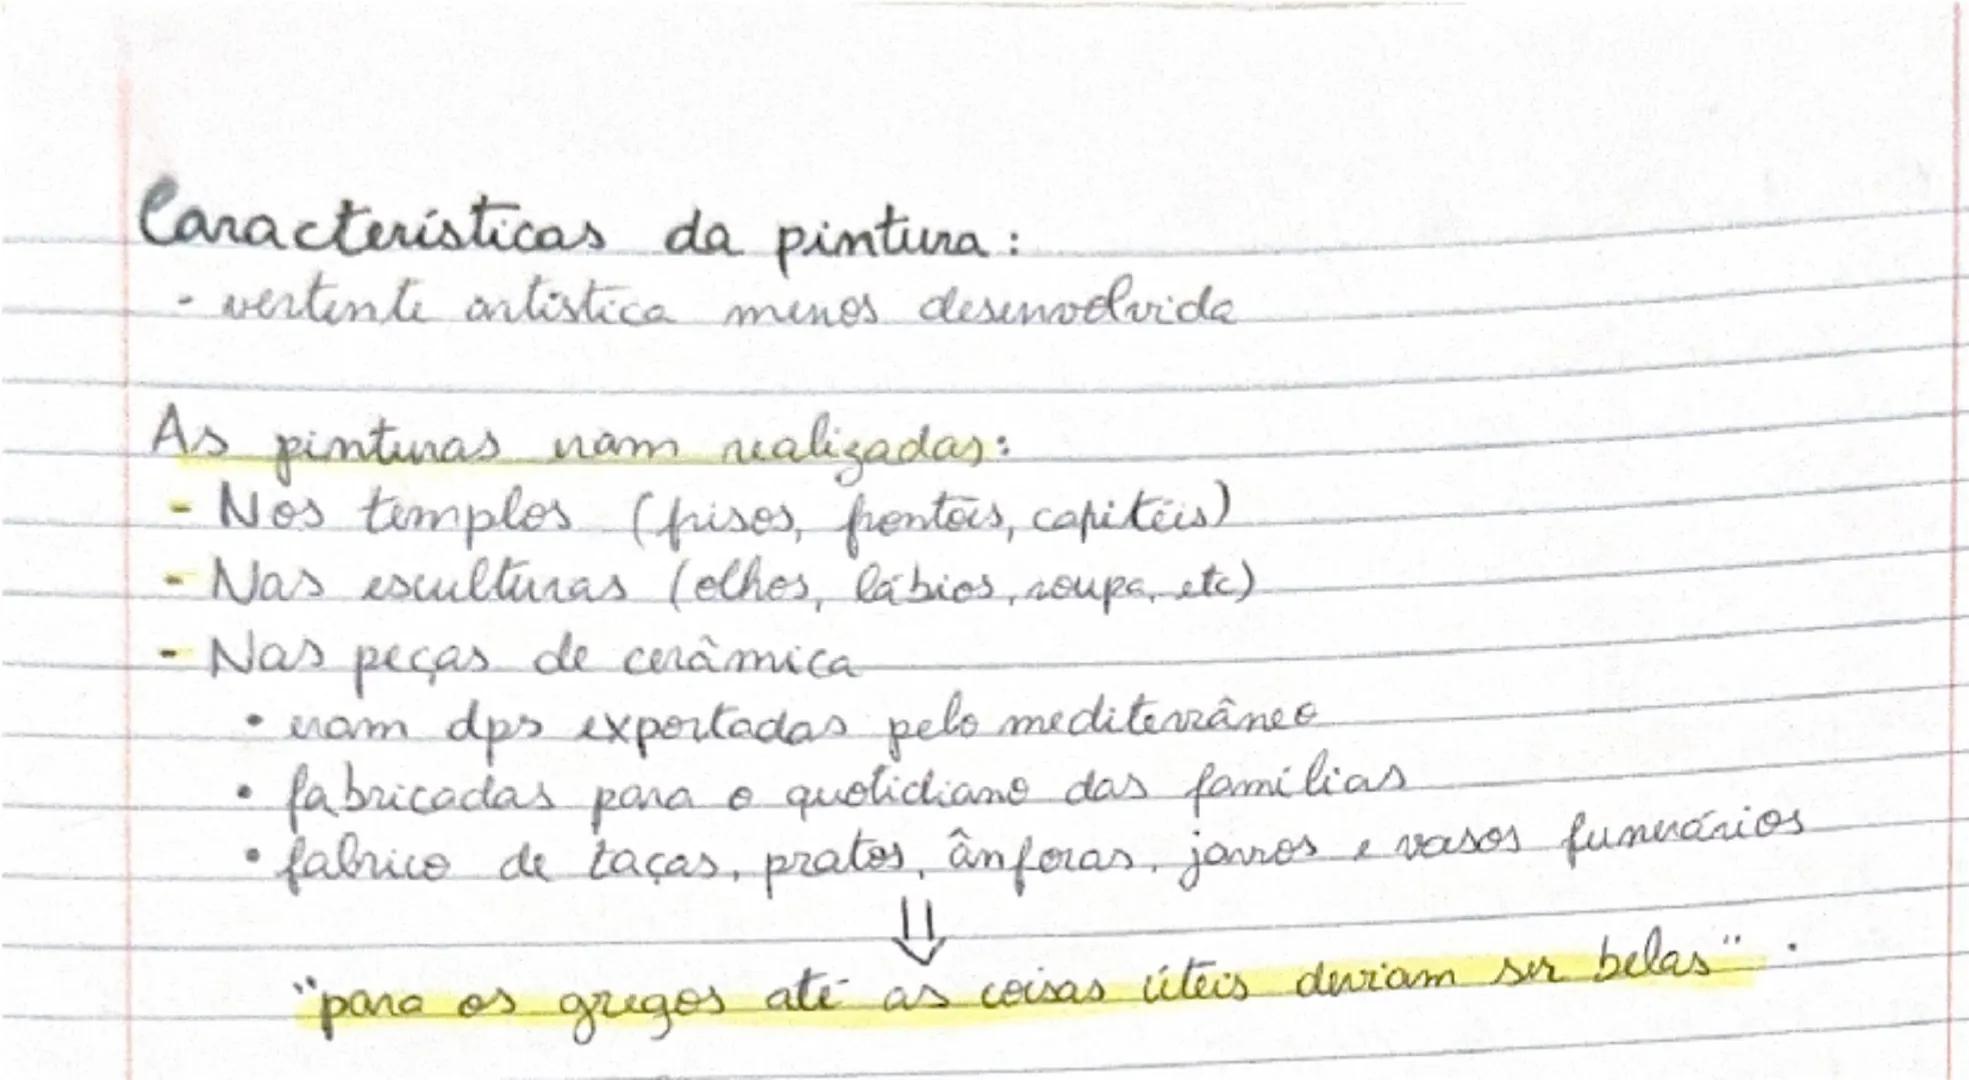 Características da pintura:
- vertente artística menos desenvolvida
As pinturas eram realizadas:
- Nos templos (frisos, frontões, capitéis)
- Nas esculturas (olhos, lábios, roupa, etc)
- Nas peças de cerâmica
• eram dps exportadas pelo mediterrâneo
• fabricadas para o quotidiano das famílias
• fabrico de taças, pratos, ânforas, jarros e vasos funerários
⇓
"para os gregos até as coisas úteis deviam ser belas".